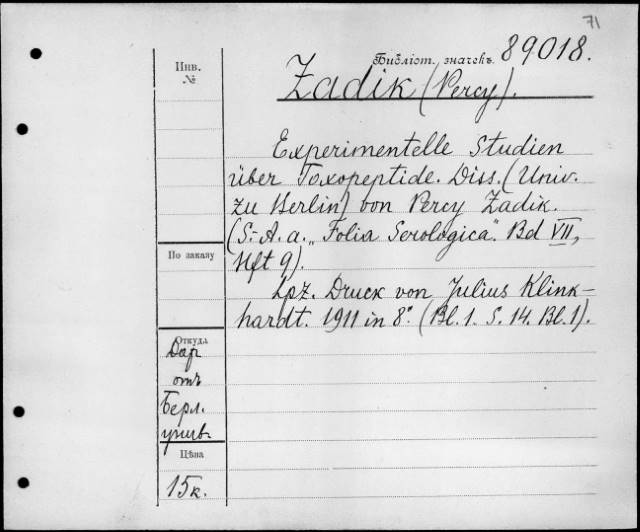 71
Библіот. значекъ 89018.
Инв.
№
Zadik (Percy).
Experimentelle Studien
über Toxopeptide. Diss. (Univ.
zu Berlin) von Percy Zadik.
(S.-A. a. „Folia Serologica". Bd VII,
Hft 9).
Lpz. Druck von Julius Klink-
hardt. 1911 in 8°. (Bl. 1. S. 14. Bl. 1).
По заказу
Откуда
Дар
отъ
Берл.
унив.
Цѣна
15 к.